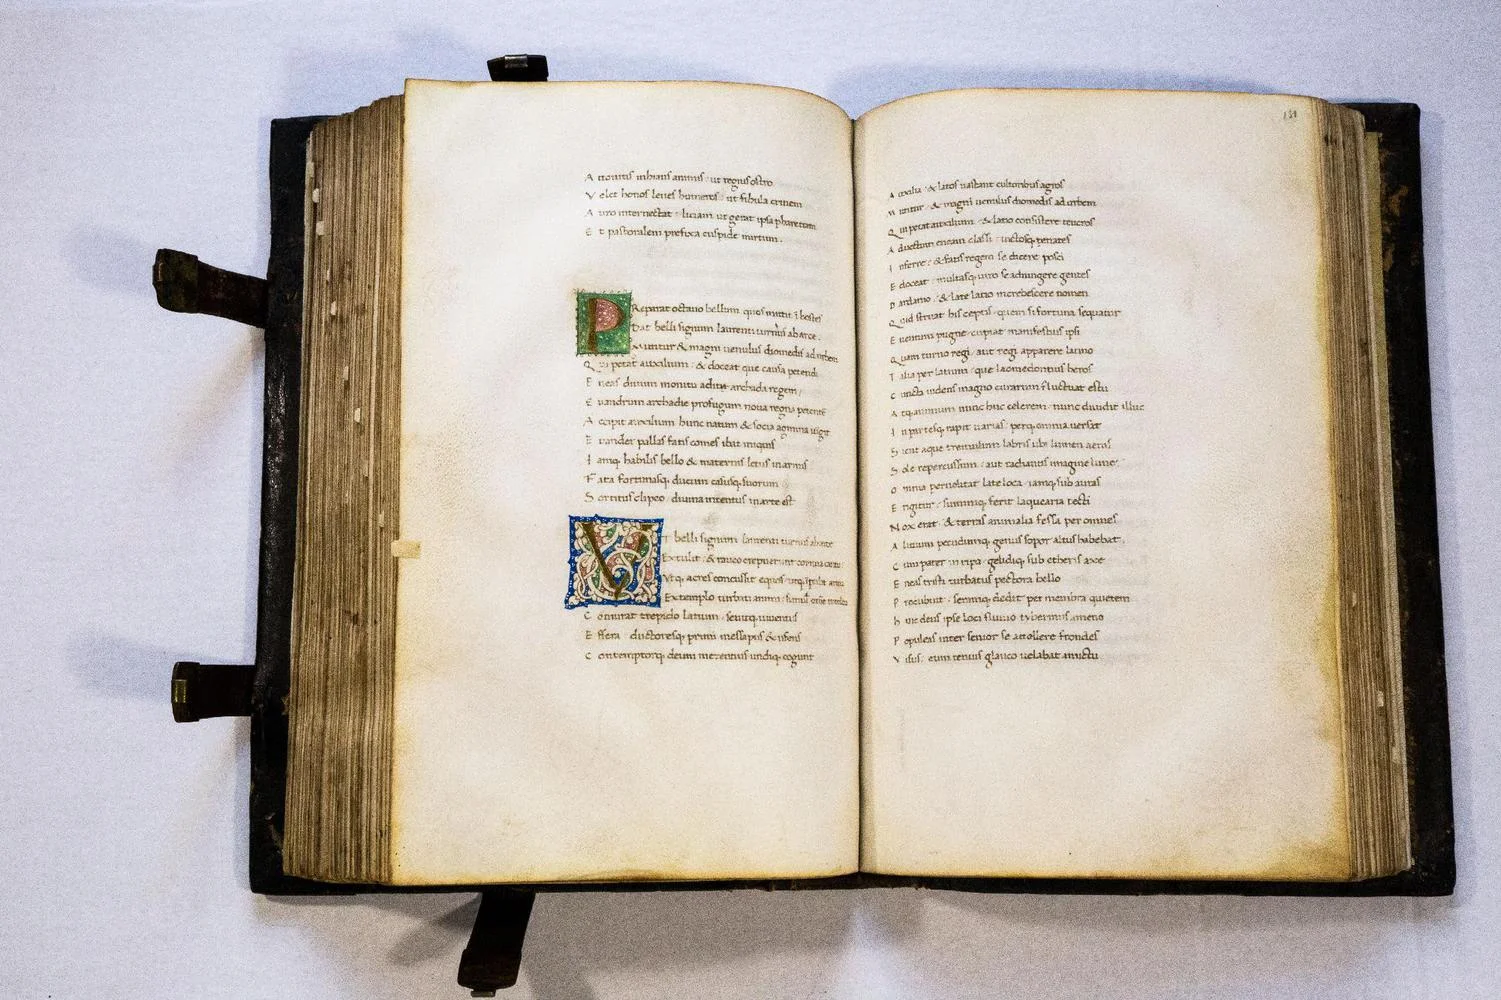 A ttonitis inhians animis · ut regius ostro
V elet honos leues humeros · ut fibula crinem
A uro internectat · liciam ut gerat ipsa pharetram
E t pastoralem prefixa cuspide mirtum .
P Reparat octauo bellum quos mittit i hostes
Dat belli signum laurenti turnus ab arce .
Mittitur & magni uenulus diomedis ad urbem
Q ui petat auxilium · & doceat que causa petendi
E neas diuum monitu adit archada regem /
E uandrum archadie profugum noua regna petente
A ccipit auxilium hunc natum & socia agmina
E uander pallas fatis comes ibat iniquis
I amq habilis bello & maternis letus in armis
F ata fortunasq ducum casusq suorum
S ortitus clipeo · diuina intentus in arte est
V T belli signum laurenti turnus ab arce
Extulit · & rauco crepuerunt cornua cantu
Vtq acres concussit equos · utq impulit arma
Extemplo turbati animi · simul omne
C oniurat trepido latium · seuitq iuuentus
E ffera · ductoresq primi messapus & ufens
C ontemptorq deum mezentius undiq cogunt
131
A uxilia · & latos uastant cultoribus agros
M ittitur · & magni uenulus diomedis ad urbem
Q ui petat auxilium · & latio consistere teucros
A duectum eneam classi · uictosq penates
I nferre · & fatis regem se dicere posci
E doceat · multasq uiro se adiungere gentes
D ardanio · & late latio increbescere nomen
Q uid struat his ceptis · quem si fortuna sequatur
E uentum pugne cupiat · manifestius ipsi
Q uam turno regi · aut regi apparere latino
T alia per latium · que laomedontius heros
C uncta uidens magno curarum fluctuat estu
A tq animum nunc huc celerem · nunc diuidit illuc
I n partesq rapit uarias · perq omnia uersat
S icut aque tremulum labris ubi lumen aenis
S ole repercussum · aut radiantis imagine lune
O mnia peruolitat late loca · iamq sub auras
E rigitur · summiq ferit laquearia tecti
N ox erat · & terras animalia fessa per omnes
A lituum pecudumq genus sopor altus habebat
C um pater in ripa · gelidiq sub etheris axe
E neas tristi turbatus pectora bello
P rocubuit · seramq dedit per membra quietem
h uic deus ipse loci fluuio tyberinus ameno
P opuleas inter senior se attollere frondes
V isus · eum tenuis glauco uelabat amictu